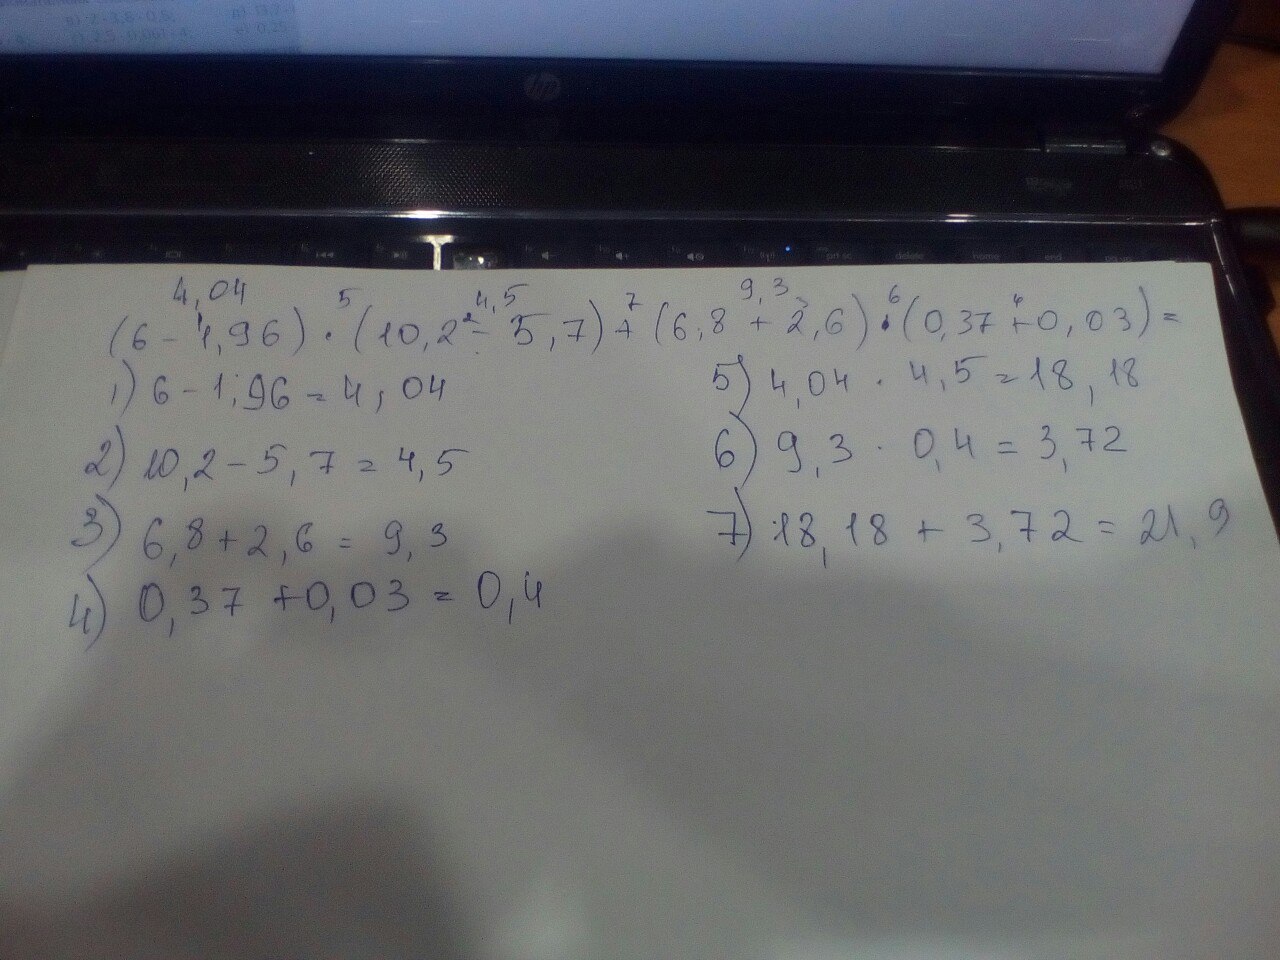 hp
delete home end
4,04 5 4,5 7 9,3 6
(6 - 1,96) · (10,2 - 5,7) + (6,8 + 2,6) · (0,37 + 0,03) =
1) 6 - 1,96 = 4,04
2) 10,2 - 5,7 = 4,5
3) 6,8 + 2,6 = 9,3
4) 0,37 + 0,03 = 0,4
5) 4,04 · 4,5 = 18,18
6) 9,3 · 0,4 = 3,72
7) 18,18 + 3,72 = 21,9